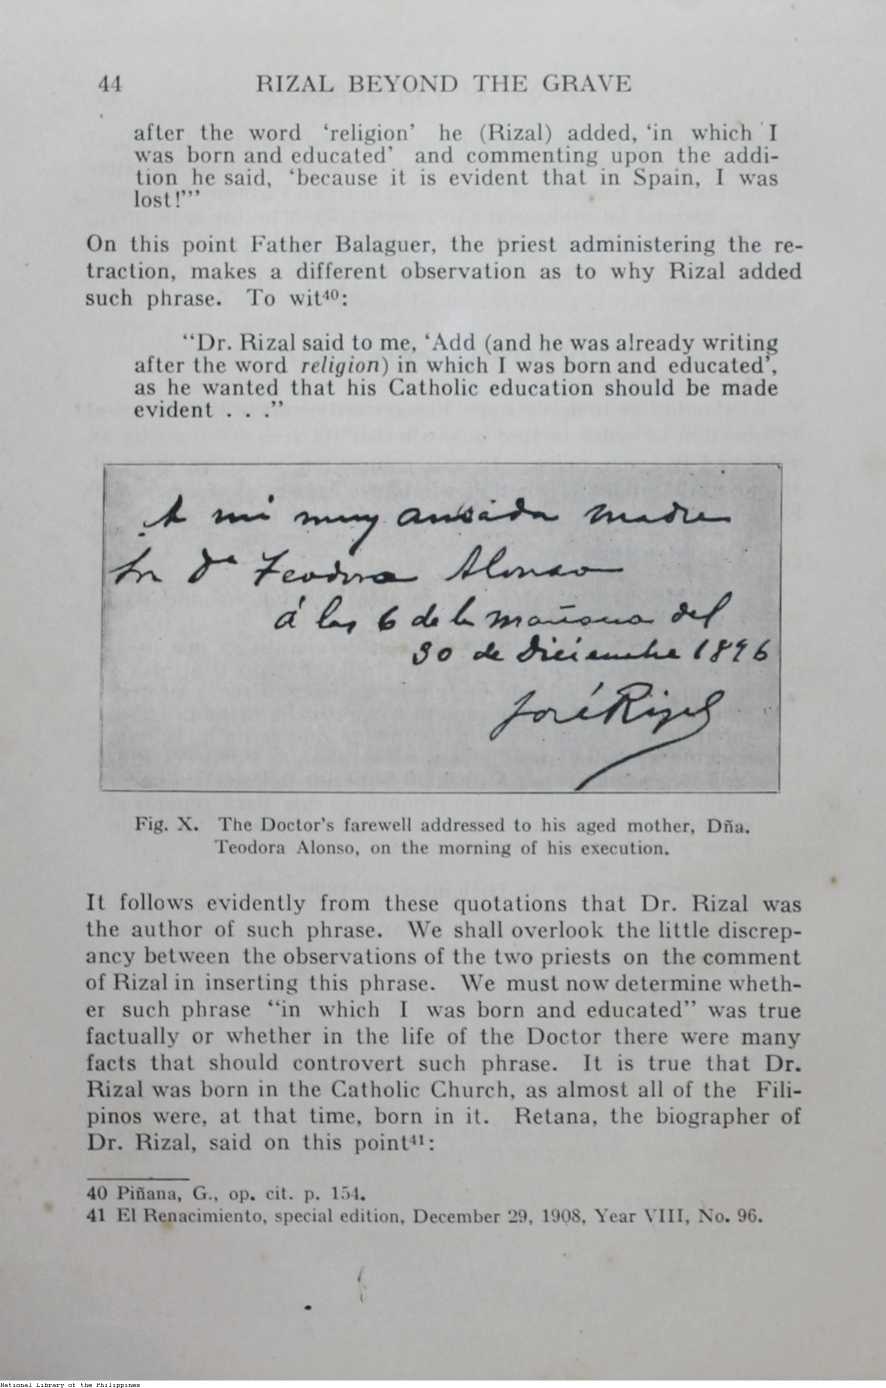 44 RIZAL BEYOND THE GRAVE
after the word ‘religion’ he (Rizal) added, ‘in which I
was born and educated’ and commenting upon the addi-
tion he said, ‘because it is evident that in Spain, I was
lost!’”
On this point Father Balaguer, the priest administering the re-
traction, makes a different observation as to why Rizal added
such phrase. To wit⁴⁰:
“Dr. Rizal said to me, ‘Add (and he was already writing
after the word religion) in which I was born and educated’,
as he wanted that his Catholic education should be made
evident . . .”
A mi muy ansiada madre
Sra Da Teodora Alonso
á las 6 de la mañana del
30 de Diciembre 1896
José Rizal
Fig. X. The Doctor's farewell addressed to his aged mother, Dña.
Teodora Alonso, on the morning of his execution.
It follows evidently from these quotations that Dr. Rizal was
the author of such phrase. We shall overlook the little discrep-
ancy between the observations of the two priests on the comment
of Rizal in inserting this phrase. We must now determine wheth-
er such phrase “in which I was born and educated” was true
factually or whether in the life of the Doctor there were many
facts that should controvert such phrase. It is true that Dr.
Rizal was born in the Catholic Church, as almost all of the Fili-
pinos were, at that time, born in it. Retana, the biographer of
Dr. Rizal, said on this point⁴¹:
40 Piñana, G., op. cit. p. 154.
41 El Renacimiento, special edition, December 29, 1908, Year VIII, No. 96.
National Library of the Philippines